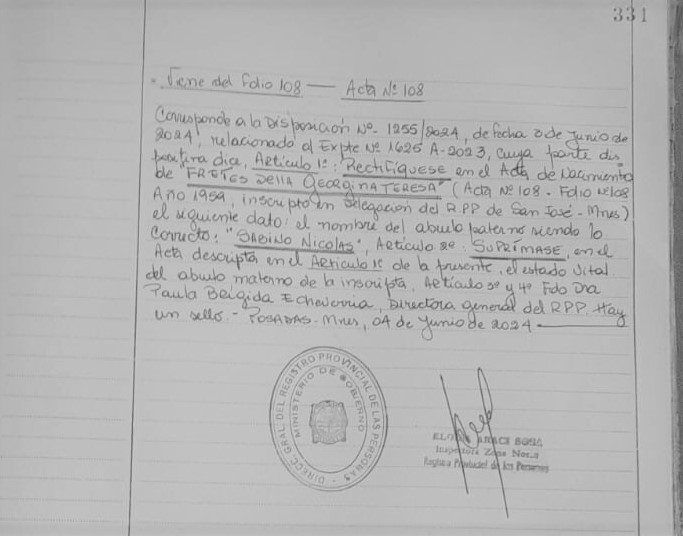 331
Viene del Folio 108 — Acta Nº 108
Corresponde a la Disposición Nº 1255/2024, de fecha 3 de Junio de
2024, relacionado al Expte Nº 1625 A-2023, cuya parte dis
positiva dice, Artículo 1º: Rectifíquese en el Acta de Nacimiento
de "FRETES Della GEORGINA TERESA" (Acta Nº 108 - Folio Nº 108
Año 1959, inscripto en Delegación del RPP de San José - Mnes)
el siguiente dato: el nombre del abuelo paterno siendo lo
Correcto: "SABINO NICOLAS", Artículo 2º: SUPRÍMASE, en el
Acta descripta en el Artículo 1º de la presente, el estado vital
del abuelo materno de la inscripta, Artículo 3º y 4º Fdo Dra
Paula Brigida Echeverria, Directora general del RPP. Hay
un sello. - POSADAS - Mnes, 04 de Junio de 2024
DIRECC. GRAL. DEL REGISTRO PROVINCIAL DE LAS PERSONAS
MINISTERIO DE GOBIERNO
Inspectora Zona
Registro Provincial de las Personas